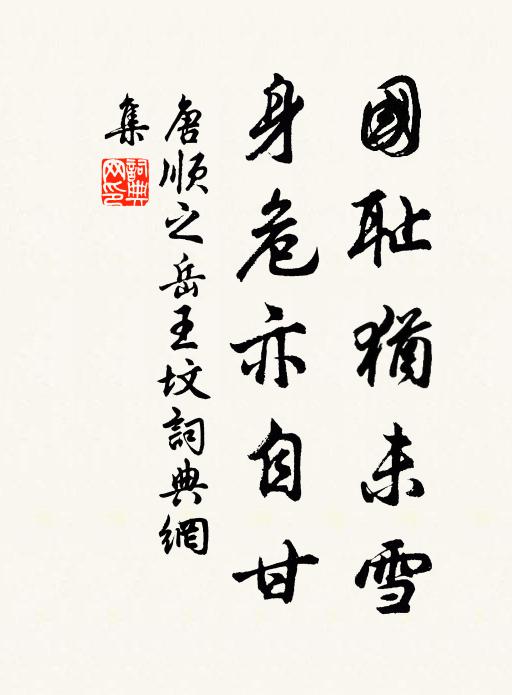 國耻猶未雪
身危亦自甘
唐順之岳王坟詞典網
集
詞典網印